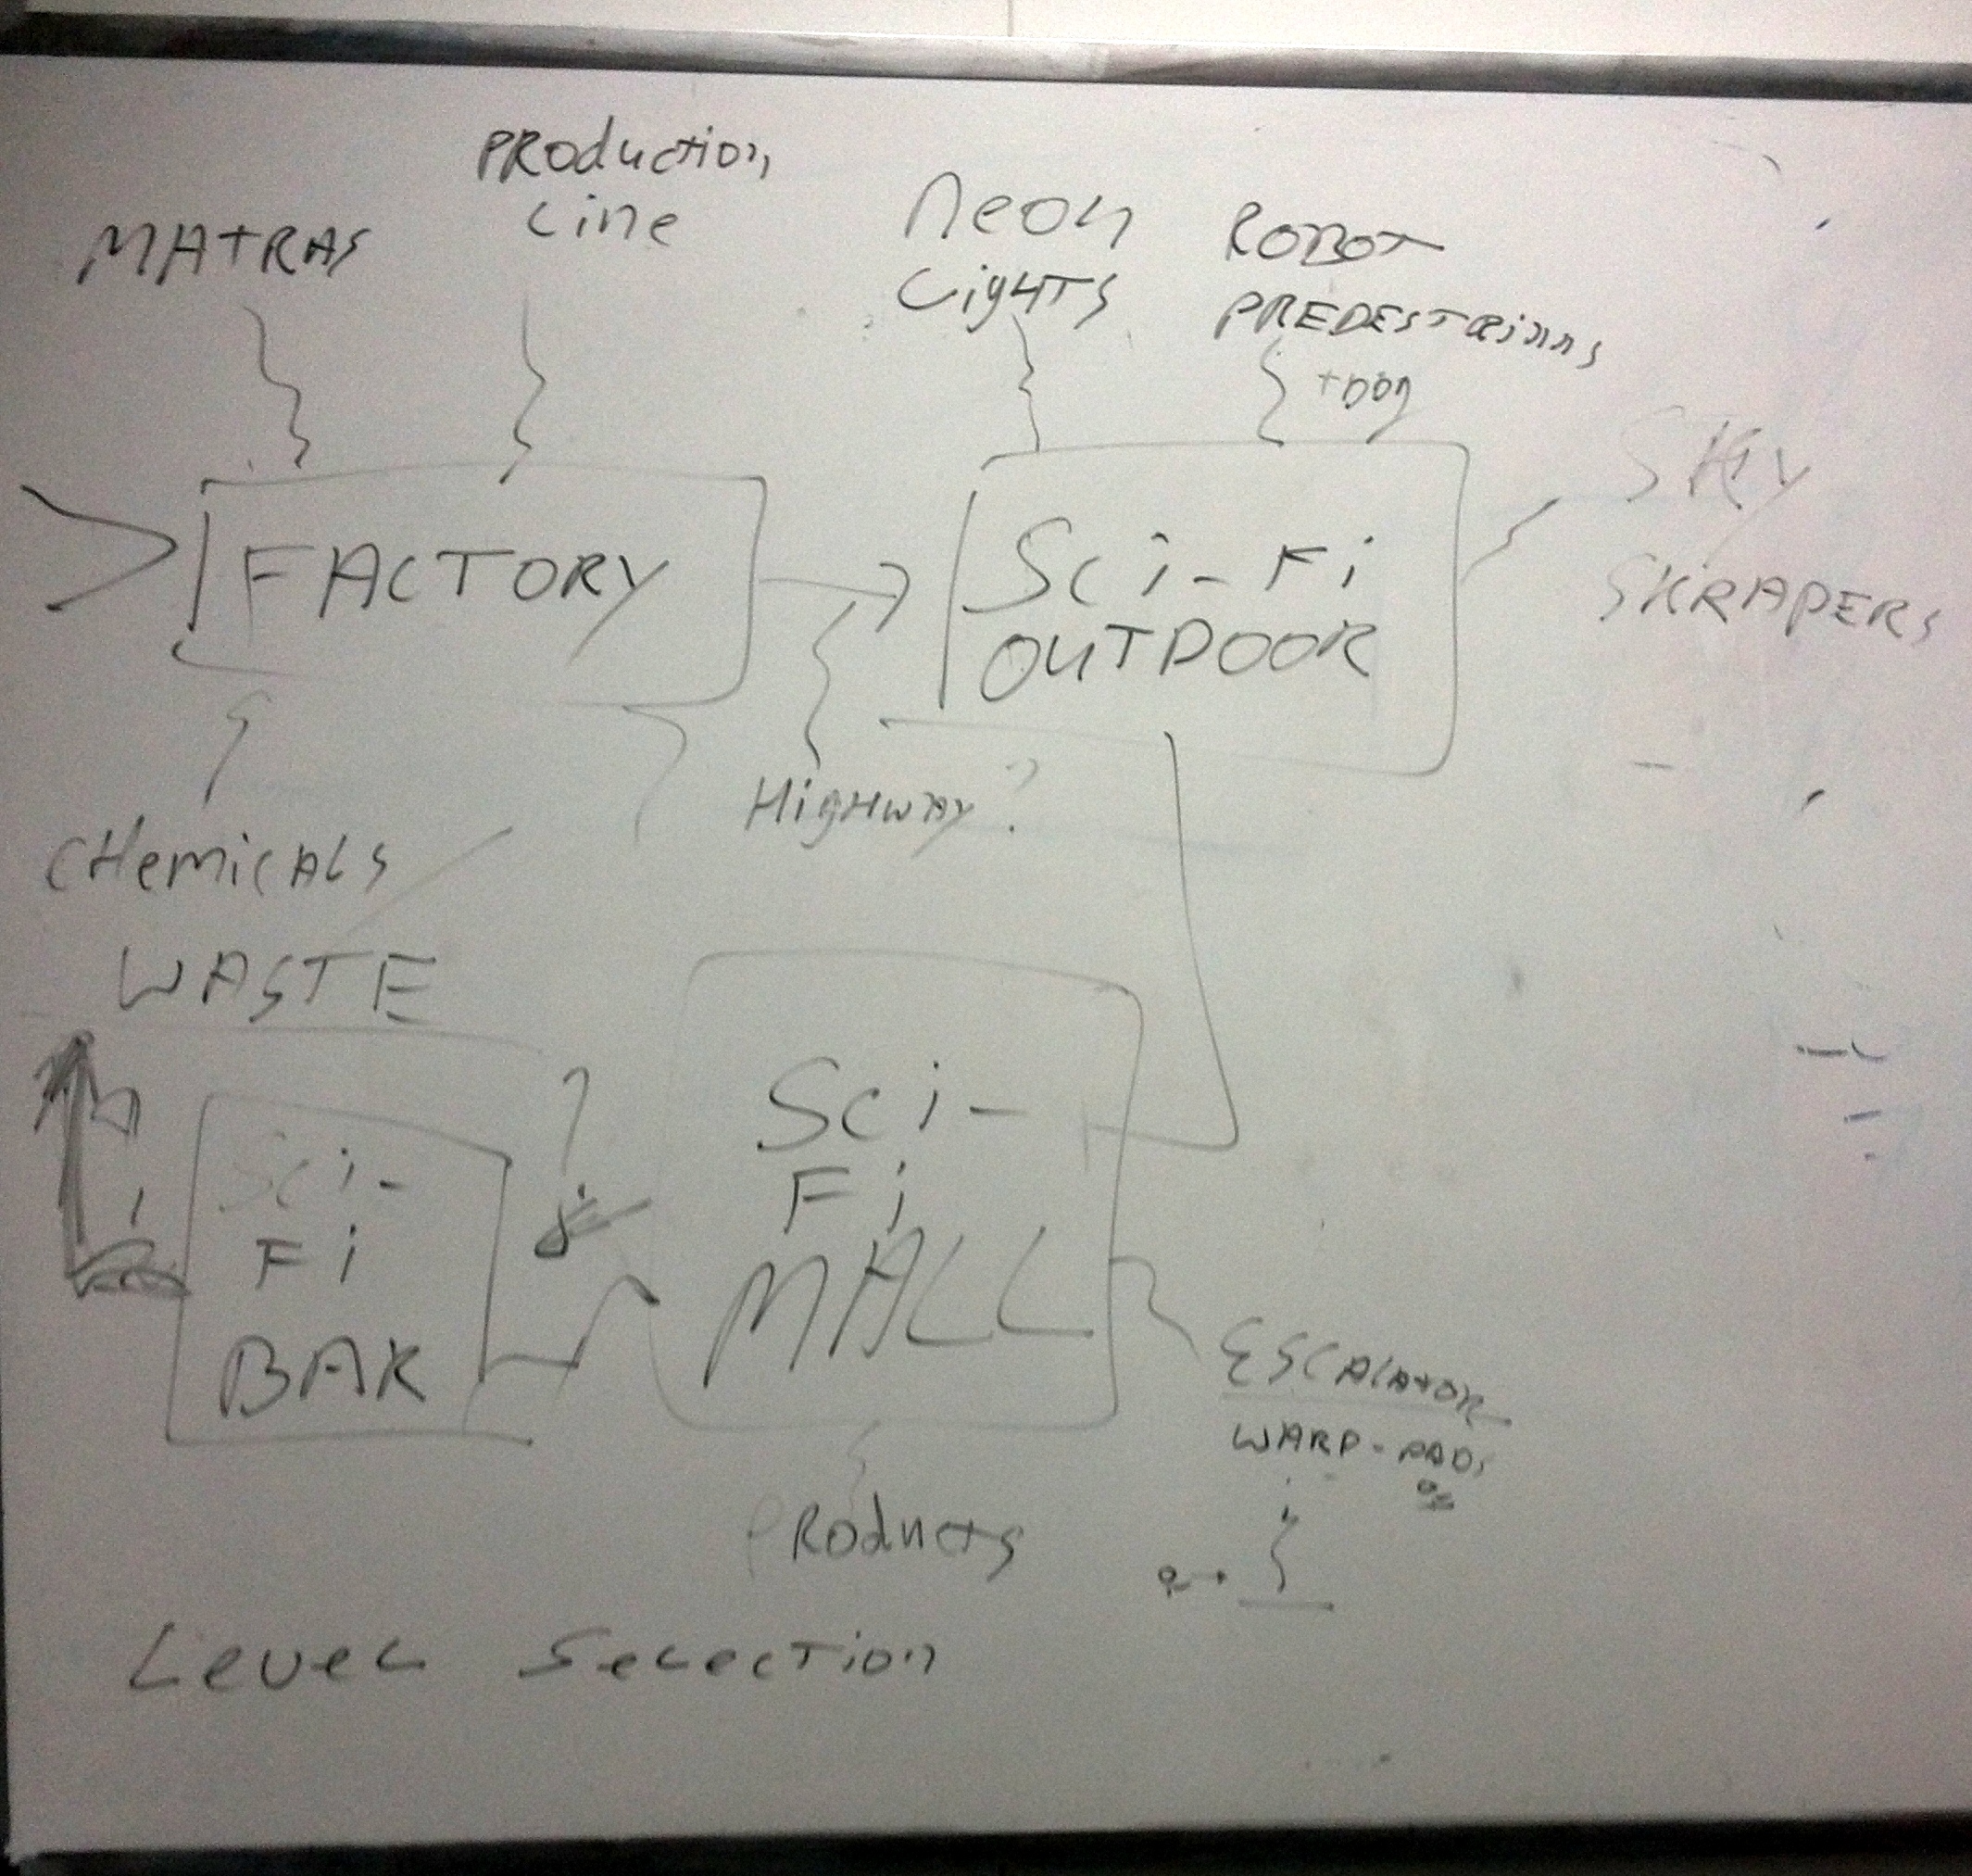 PRODUCTION
LINE
MATRAS
NEON
LIGHTS
ROBOT
PREDESTRIANS
+ DOG
SKY
SKRAPERS
FACTORY
SCi-Fi
OUTDOOR
HigHWAY?
CHemicALS
WASTE
?
SCi-
Fi
BAR
SCi-
Fi
MALL
ESCALATOR
WARP-PADS
PRODUCTS
LeveL SeLecTion